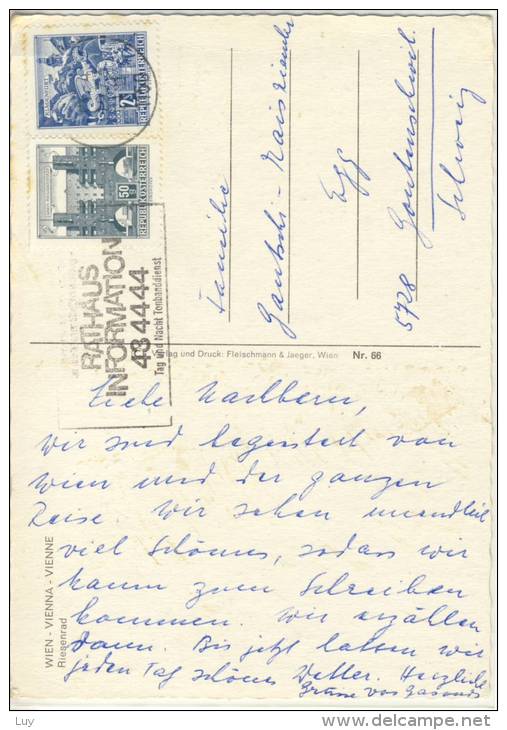 REPUBLIK ÖSTERREICH
2S
REPUBLIK ÖSTERREICH
50
RATHAUS
INFORMATION
434444
Tag und Nacht Tonbanddienst
Familie
Gautschi -
Egg
5728 Gontenschwil
Schweiz
Verlag und Druck: Fleischmann & Jaeger, Wien Nr. 66
WIEN - VIENNA - VIENNE
Riesenrad
Liebe Nachbarn,
wir sind begeistert von
Wien und der ganzen
Reise. Wir sehen unendlich
viel Schönes, sodass wir
kaum zum Schreiben
kommen. Wir erzählen
dann. Bis jetzt hatten wir
jeden Tag schönes Wetter. Herzliche
Grüsse von
Luy
www.delcampe.net